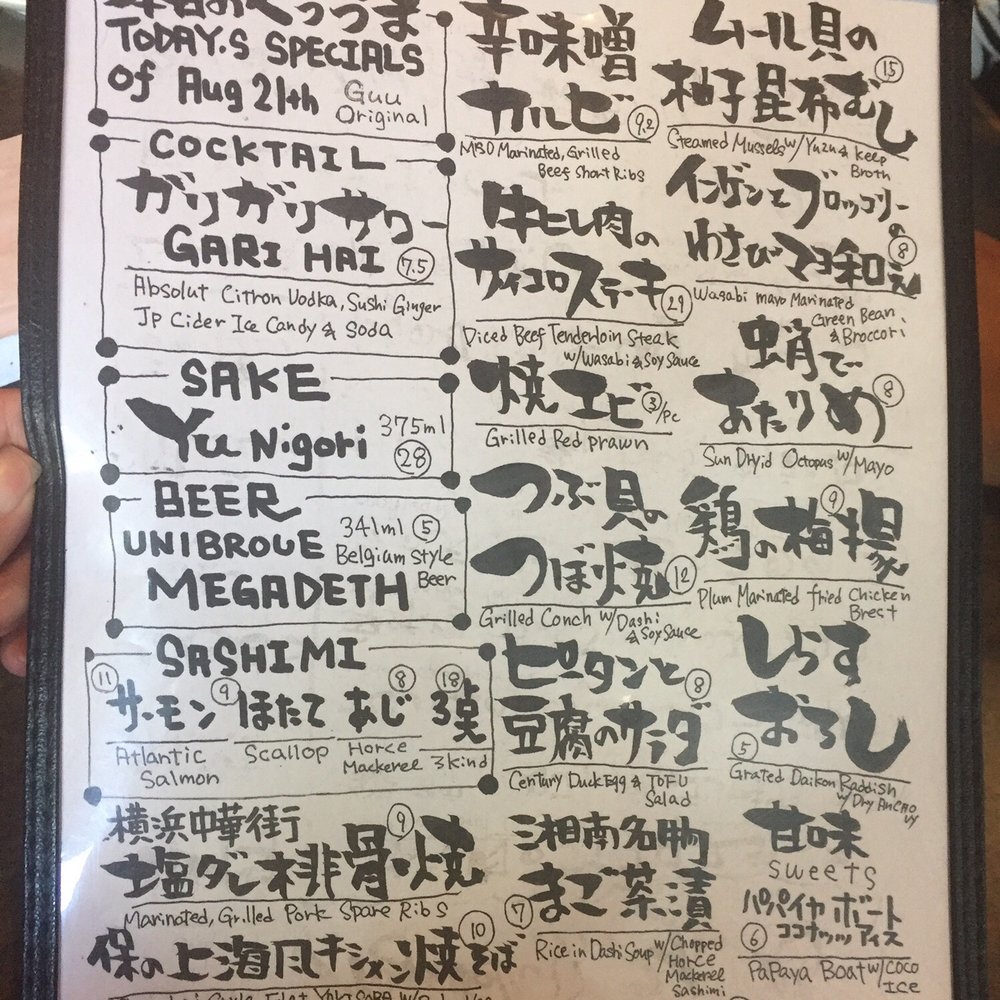 TODAY.S SPECIALS
of Aug 21th
Guu
Original
COCKTAIL
ガリガリサワー
GARI HAI 7.5
Absolut Citron Vodka, Sushi Ginger
Jp Cider Ice Candy & Soda
SAKE
Yu Nigori 375ml
28
BEER
UNIBROUE 341ml 5
Belgium Style
MEGADETH Beer
SASHIMI
11 サーモン 9 ほたて 8 あじ 18 3点
Atlantic
Salmon
Scallop
Horce
Mackerel
3kind
横浜中華街
塩ダレ排骨焼 9
Marinated, Grilled Pork Spare Ribs
保の上海風キシメン焼そば 10
辛味噌
カルビ 9.2
MISO Marinated, Grilled
Beef Short Ribs
牛ヒレ肉の
サイコロステーキ 29
Diced Beef Tenderloin Steak
w/Wasabi & Soy Sauce
焼エビ 3/pc
Grilled Red prawn
つぶ貝の
つぼ焼 12
Grilled Conch w/Dashi
& Soy Sauce
ピータンと
豆腐のサラダ 8
Century Duck Egg & TOFU
Salad
湘南名物
まご茶漬 7
Rice in Dashi Soup w/Chopped
Horce
Mackerel
Sashimi
ムール貝の
柚子昆布むし 15
Steamed Mussels w/Yuzu & Keep
Broth
インゲンとブロッコリーの
わさびマヨ和え 8
Wasabi mayo Marinated
Green Bean,
& Broccori
蛸で
あたりめ 8
Sun Dryid Octopus w/Mayo
鶏の梅揚 9
Plum Marinated fried Chicken
Brest
しらす
おろし 5
Grated Daikon Raddish
w/Dry Ancho
vy
甘味
sweets
パパイヤボート
ココナッツアイス 6
Papaya Boat w/coco
Ice